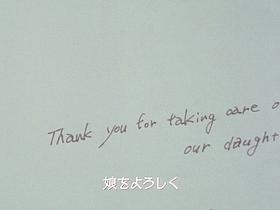 Thank you for taking care o
our daught
娘をよろしく